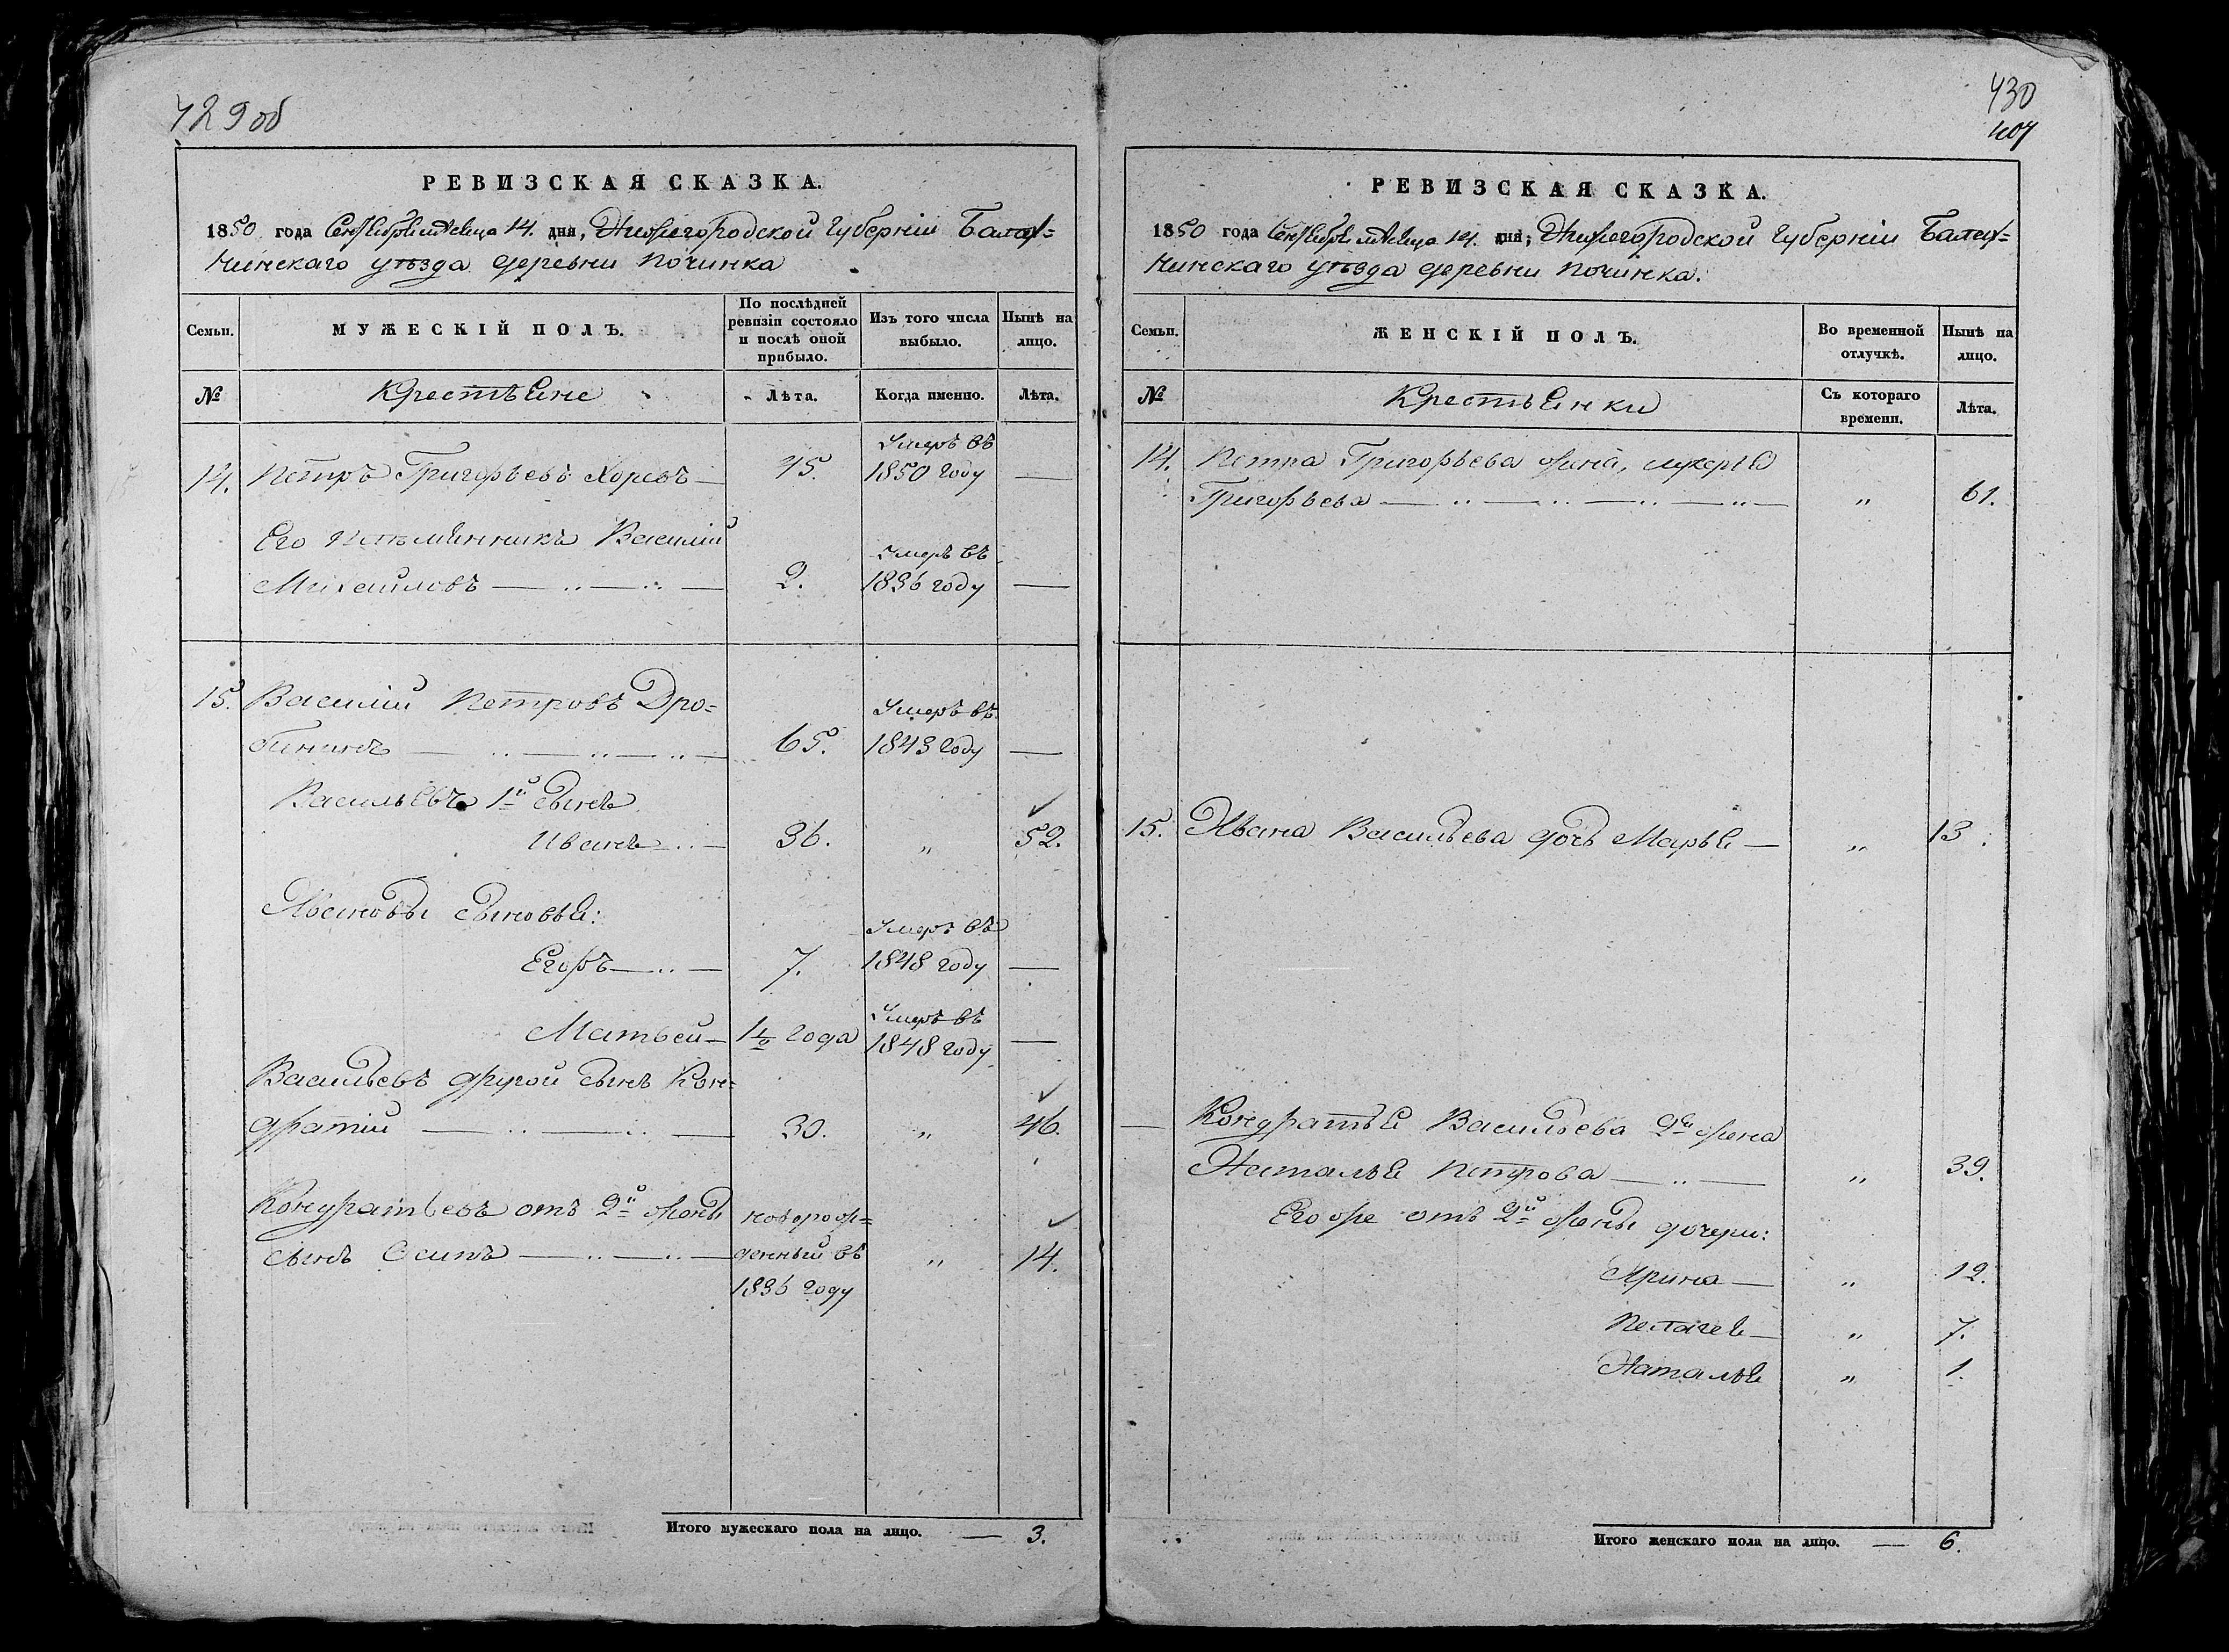 429 об
РЕВИЗСКАЯ СКАЗКА.
1850 года Сентября мѣсяца 14. дня, Нижегородской Губерніи Балах=
нинскаго уѣзда деревни Починка
Семьи.
МУЖЕСКІЙ ПОЛЪ.
По послѣдней ревизіи состояло и послѣ оной прибыло.
Изъ того числа выбыло.
Нынѣ на лицо.
№
Крестьяне
Лѣта.
Когда именно.
Лѣта.
Умеръ въ
14. Петръ Григорьевъ Хоревъ — 45. 1850 году —
Его племянникъ Василій
Умеръ въ
Михайловъ — „ — „ — 2. 1836 году —
15. Василій Петровъ Дро=
Умеръ въ
— „ — „ — 65. 1843 году —
Васильевъ 1й сынъ
Иванъ — „ — 36. „ 52.
Ивановы сыновья:
Умеръ въ
Егоръ — „ — 7. 1848 году —
Умеръ въ
Матвей — 1½ года 1848 году —
Васильевъ другой сынъ Кон=
дратій — „ — „ — 30. „ 46.
Кондратьевъ отъ 2й жены новорож=
сынъ Осипъ — „ — „ — денный въ „ 14.
1836 году
Итого мужескаго пола на лицо. — 3.
430
407
РЕВИЗСКАЯ СКАЗКА.
1850 года Сентября мѣсяца 14. дня, Нижегородской Губерніи Балах=
нинскаго уѣзда деревни Починка.
Семьи.
ЖЕНСКІЙ ПОЛЪ.
Во временной отлучкѣ.
Нынѣ на лицо.
№
Крестьянки
Съ котораго времени.
Лѣта.
14. Петра Григорьева жена, Лукерья
Григорьева — „ — „ — „ — „ — „ 61.
15. Ивана Васильева дочь Марья — „ 13.
— Кондратья Васильева 2я жена
Наталья Петрова — „ — „ 39.
Его же отъ 2й жены дочери:
Арина — „ 12.
Пелагея — „ 7.
Наталья „ 1.
Итого женскаго пола на лицо. — 6.